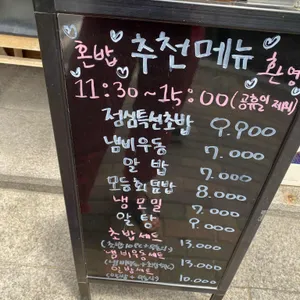 혼밥 추천메뉴 환영
11:30~15:00(공휴일 제외)
점심특선초밥 9.900
냄비우동 7.000
알밥 7.000
모듬회덮밥 8.000
냉모밀 7.000
알탕 9.000
초밥세트 13.000
냄비우동세트 13.000
알밥세트 10.000